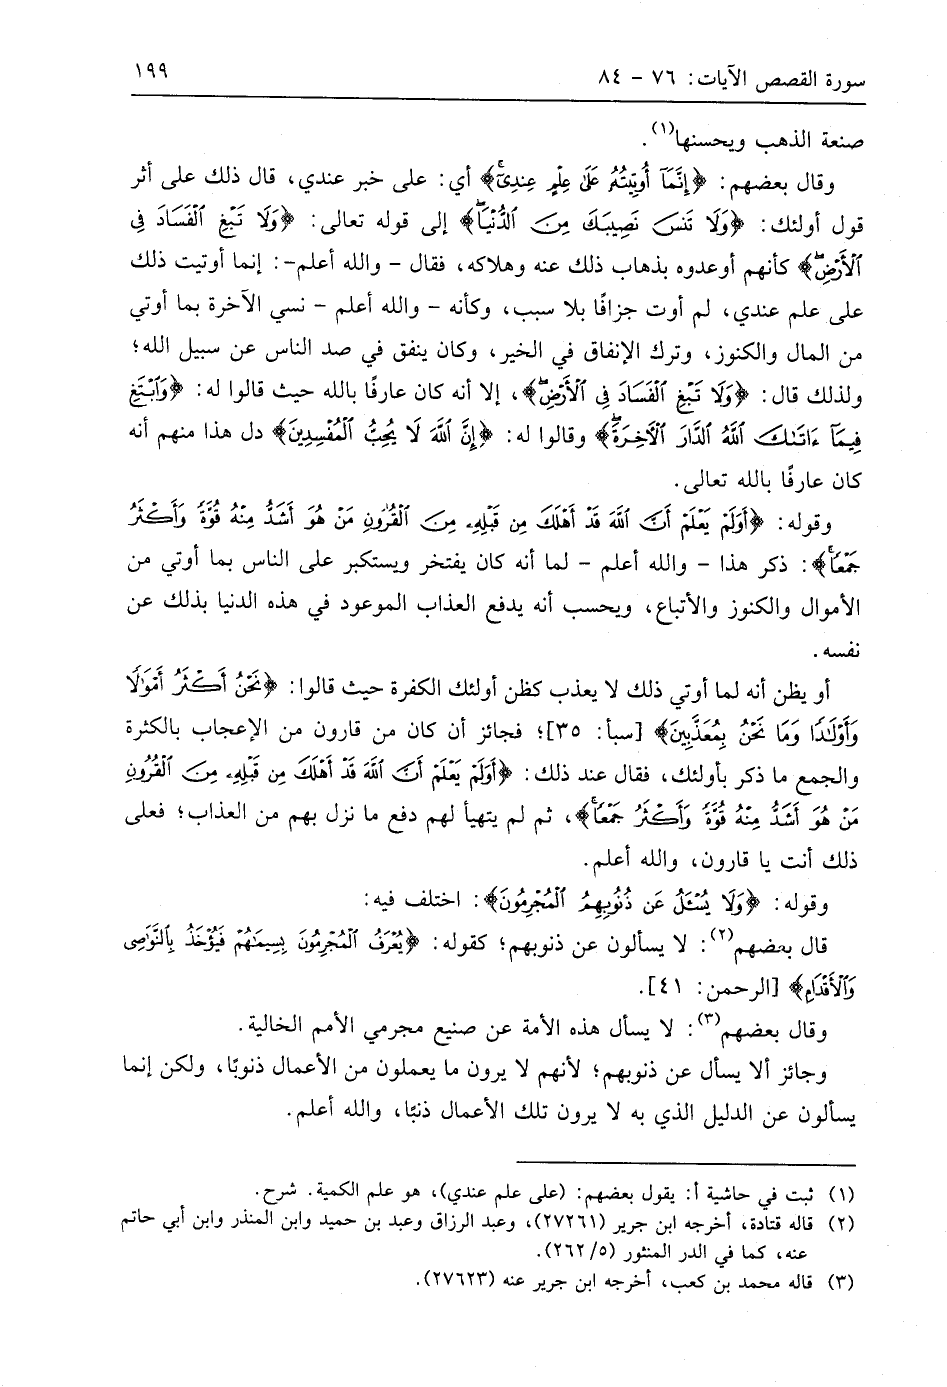 سورة القصص الآيات: ٧٦ - ٨٤
١٩٩
صنعة الذهب ويحسنها(١).
وقال بعضهم: ﴿إِنَّمَآ أُوتِيتُهُۥ عَلَىٰ عِلْمٍ عِندِىٓۚ﴾ أي: على خبر عندي، قال ذلك على أثر
قول أولئك: ﴿وَلَا تَنسَ نَصِيبَكَ مِنَ ٱلدُّنْيَاۖ﴾ إلى قوله تعالى: ﴿وَلَا تَبْغِ ٱلْفَسَادَ فِى
ٱلْأَرْضِۖ﴾ كأنهم أوعدوه بذهاب ذلك عنه وهلاكه، فقال - والله أعلم-: إنما أوتيت ذلك
على علم عندي، لم أوت جزافًا بلا سبب، وكأنه - والله أعلم - نسي الآخرة بما أوتي
من المال والكنوز، وترك الإنفاق في الخير، وكان ينفق في صد الناس عن سبيل الله؛
ولذلك قال: ﴿وَلَا تَبْغِ ٱلْفَسَادَ فِى ٱلْأَرْضِۖ﴾، إلا أنه كان عارفًا بالله حيث قالوا له: ﴿وَٱبْتَغِ
فِيمَآ ءَاتَىٰكَ ٱللَّهُ ٱلدَّارَ ٱلْأَخِرَةَۖ﴾ وقالوا له: ﴿إِنَّ ٱللَّهَ لَا يُحِبُّ ٱلْمُفْسِدِينَ﴾ دل هذا منهم أنه
كان عارفًا بالله تعالى.
وقوله: ﴿أَوَلَمْ يَعْلَمْ أَنَّ ٱللَّهَ قَدْ أَهْلَكَ مِن قَبْلِهِۦ مِنَ ٱلْقُرُونِ مَنْ هُوَ أَشَدُّ مِنْهُ قُوَّةً وَأَكْثَرُ
جَمْعًاۚ﴾: ذكر هذا - والله أعلم - لما أنه كان يفتخر ويستكبر على الناس بما أوتي من
الأموال والكنوز والأتباع، ويحسب أنه يدفع العذاب الموعود في هذه الدنيا بذلك عن
نفسه.
أو يظن أنه لما أوتي ذلك لا يعذب كظن أولئك الكفرة حيث قالوا: ﴿نَحْنُ أَكْثَرُ أَمْوَٰلًا
وَأَوْلَـٰدًا وَمَا نَحْنُ بِمُعَذَّبِينَ﴾ [سبأ: ٣٥]؛ فجائز أن كان من قارون من الإعجاب بالكثرة
والجمع ما ذكر بأولئك، فقال عند ذلك: ﴿أَوَلَمْ يَعْلَمْ أَنَّ ٱللَّهَ قَدْ أَهْلَكَ مِن قَبْلِهِۦ مِنَ ٱلْقُرُونِ
مَنْ هُوَ أَشَدُّ مِنْهُ قُوَّةً وَأَكْثَرُ جَمْعًاۚ﴾، ثم لم يتهيأ لهم دفع ما نزل بهم من العذاب؛ فعلى
ذلك أنت يا قارون، والله أعلم.
وقوله: ﴿وَلَا يُسْـَٔلُ عَن ذُنُوبِهِمُ ٱلْمُجْرِمُونَ﴾: اختلف فيه:
قال بعضهم(٢): لا يسألون عن ذنوبهم؛ كقوله: ﴿يُعْرَفُ ٱلْمُجْرِمُونَ بِسِيمَـٰهُمْ فَيُؤْخَذُ بِٱلنَّوَٰصِى
وَٱلْأَقْدَامِ﴾ [الرحمن: ٤١].
وقال بعضهم(٣): لا يسأل هذه الأمة عن صنيع مجرمي الأمم الخالية.
وجائز ألا يسأل عن ذنوبهم؛ لأنهم لا يرون ما يعملون من الأعمال ذنوبًا، ولكن إنما
يسألون عن الدليل الذي به لا يرون تلك الأعمال ذنبًا، والله أعلم.
(١) ثبت في حاشية أ: يقول بعضهم: (على علم عندي)، هو علم الكمية. شرح.
(٢) قاله قتادة، أخرجه ابن جرير (٢٧٢٦١)، وعبد الرزاق وعبد بن حميد وابن المنذر وابن أبي حاتم
عنه، كما في الدر المنثور (٥/ ٢٦٢).
(٣) قاله محمد بن كعب، أخرجه ابن جرير عنه (٢٧٦٢٣).